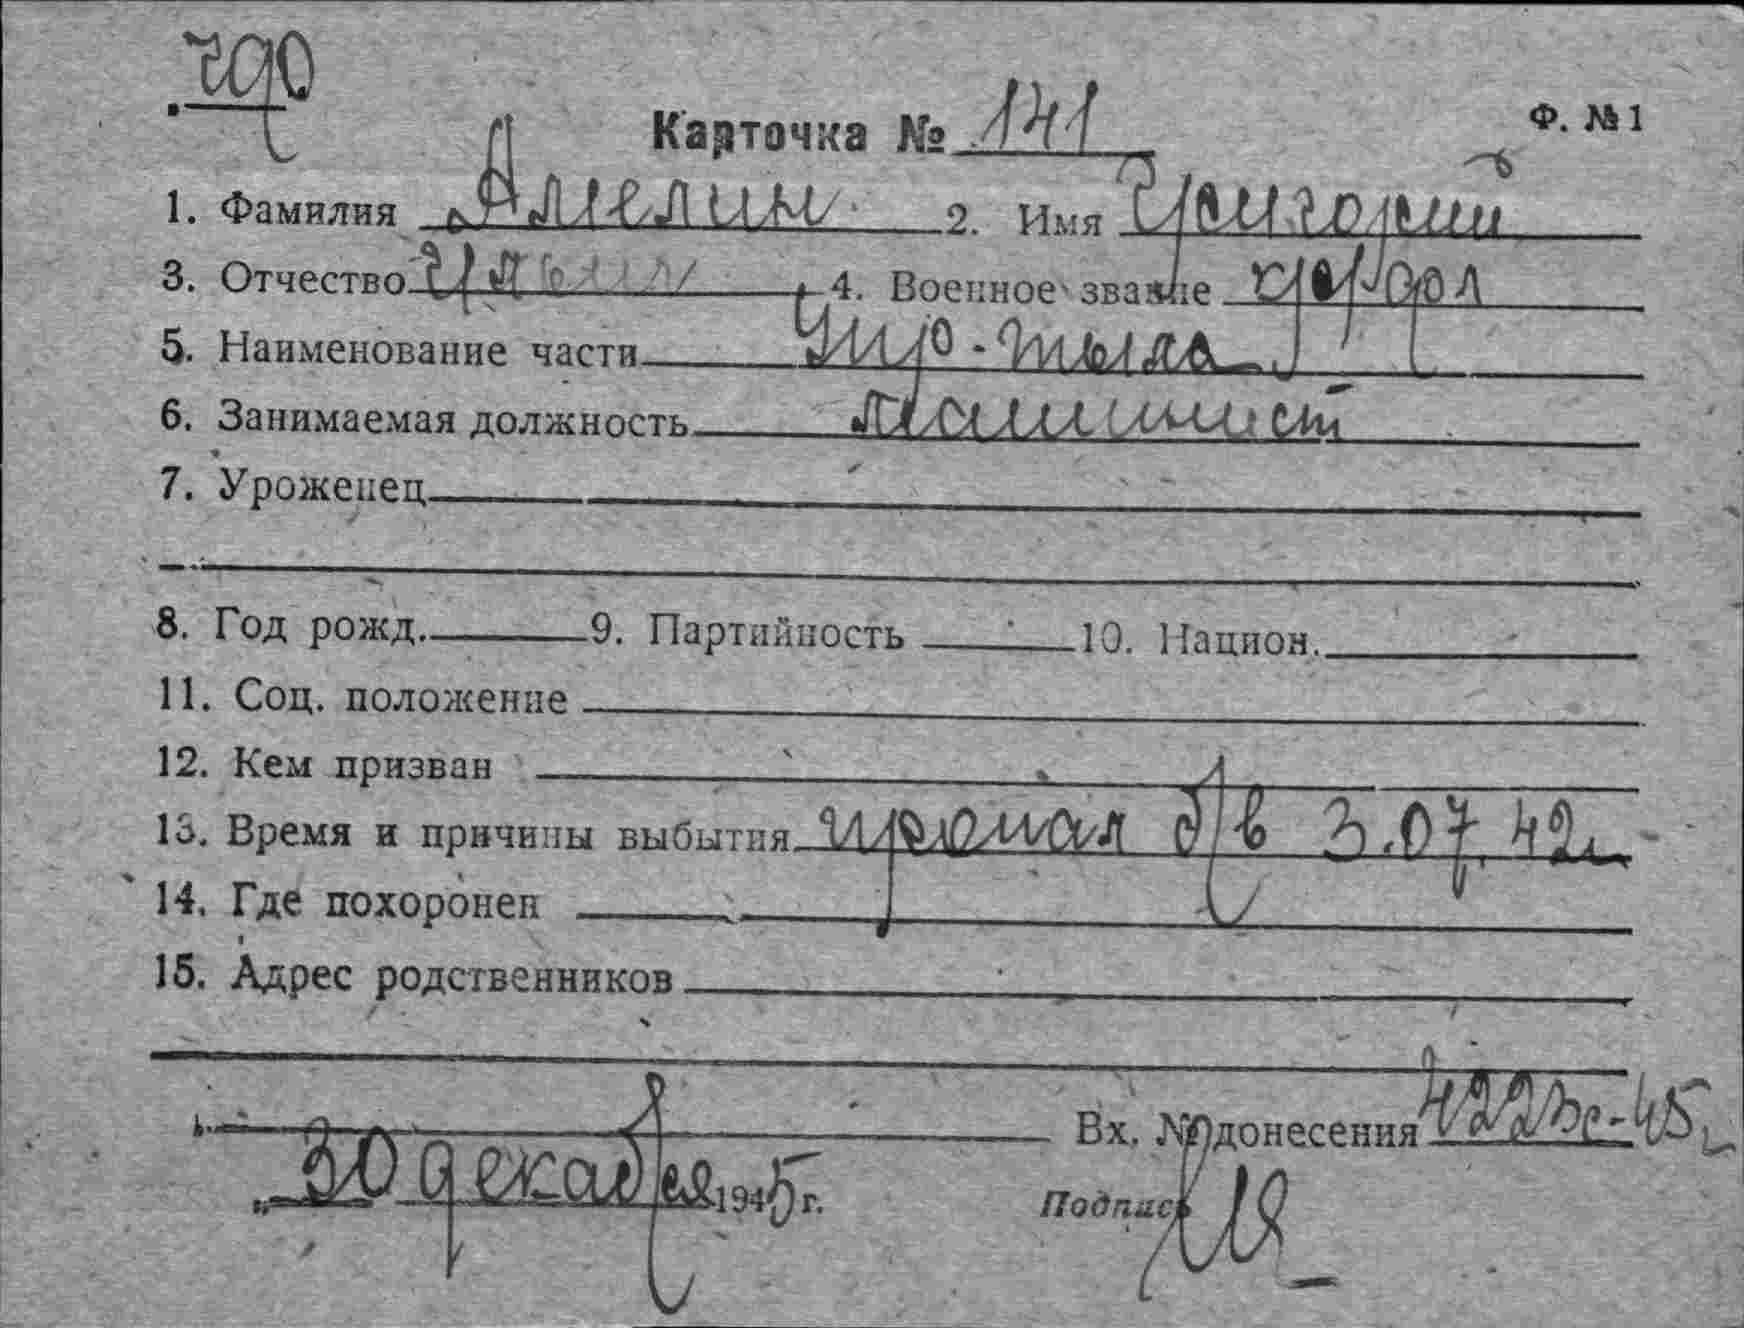 чдо
Карточка № 141
Ф. № 1
1. Фамилия Амелин 2. Имя Григорий
3. Отчество 4. Военное звание
5. Наименование части Упр. тыла
6. Занимаемая должность машинист
7. Уроженец
8. Год рожд. 9. Партийность 10. Национ.
11. Соц. положение
12. Кем призван
13. Время и причины выбытия пропал б/в 3.07.42г
14. Где похоронен
15. Адрес родственников
Вх. № донесения 4223с-45г
„ 30 декабря 1945 г.
Подпись